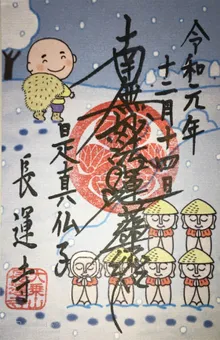 令和元年
十二月十四日
南無妙法蓮華經
是真仏子
長運寺